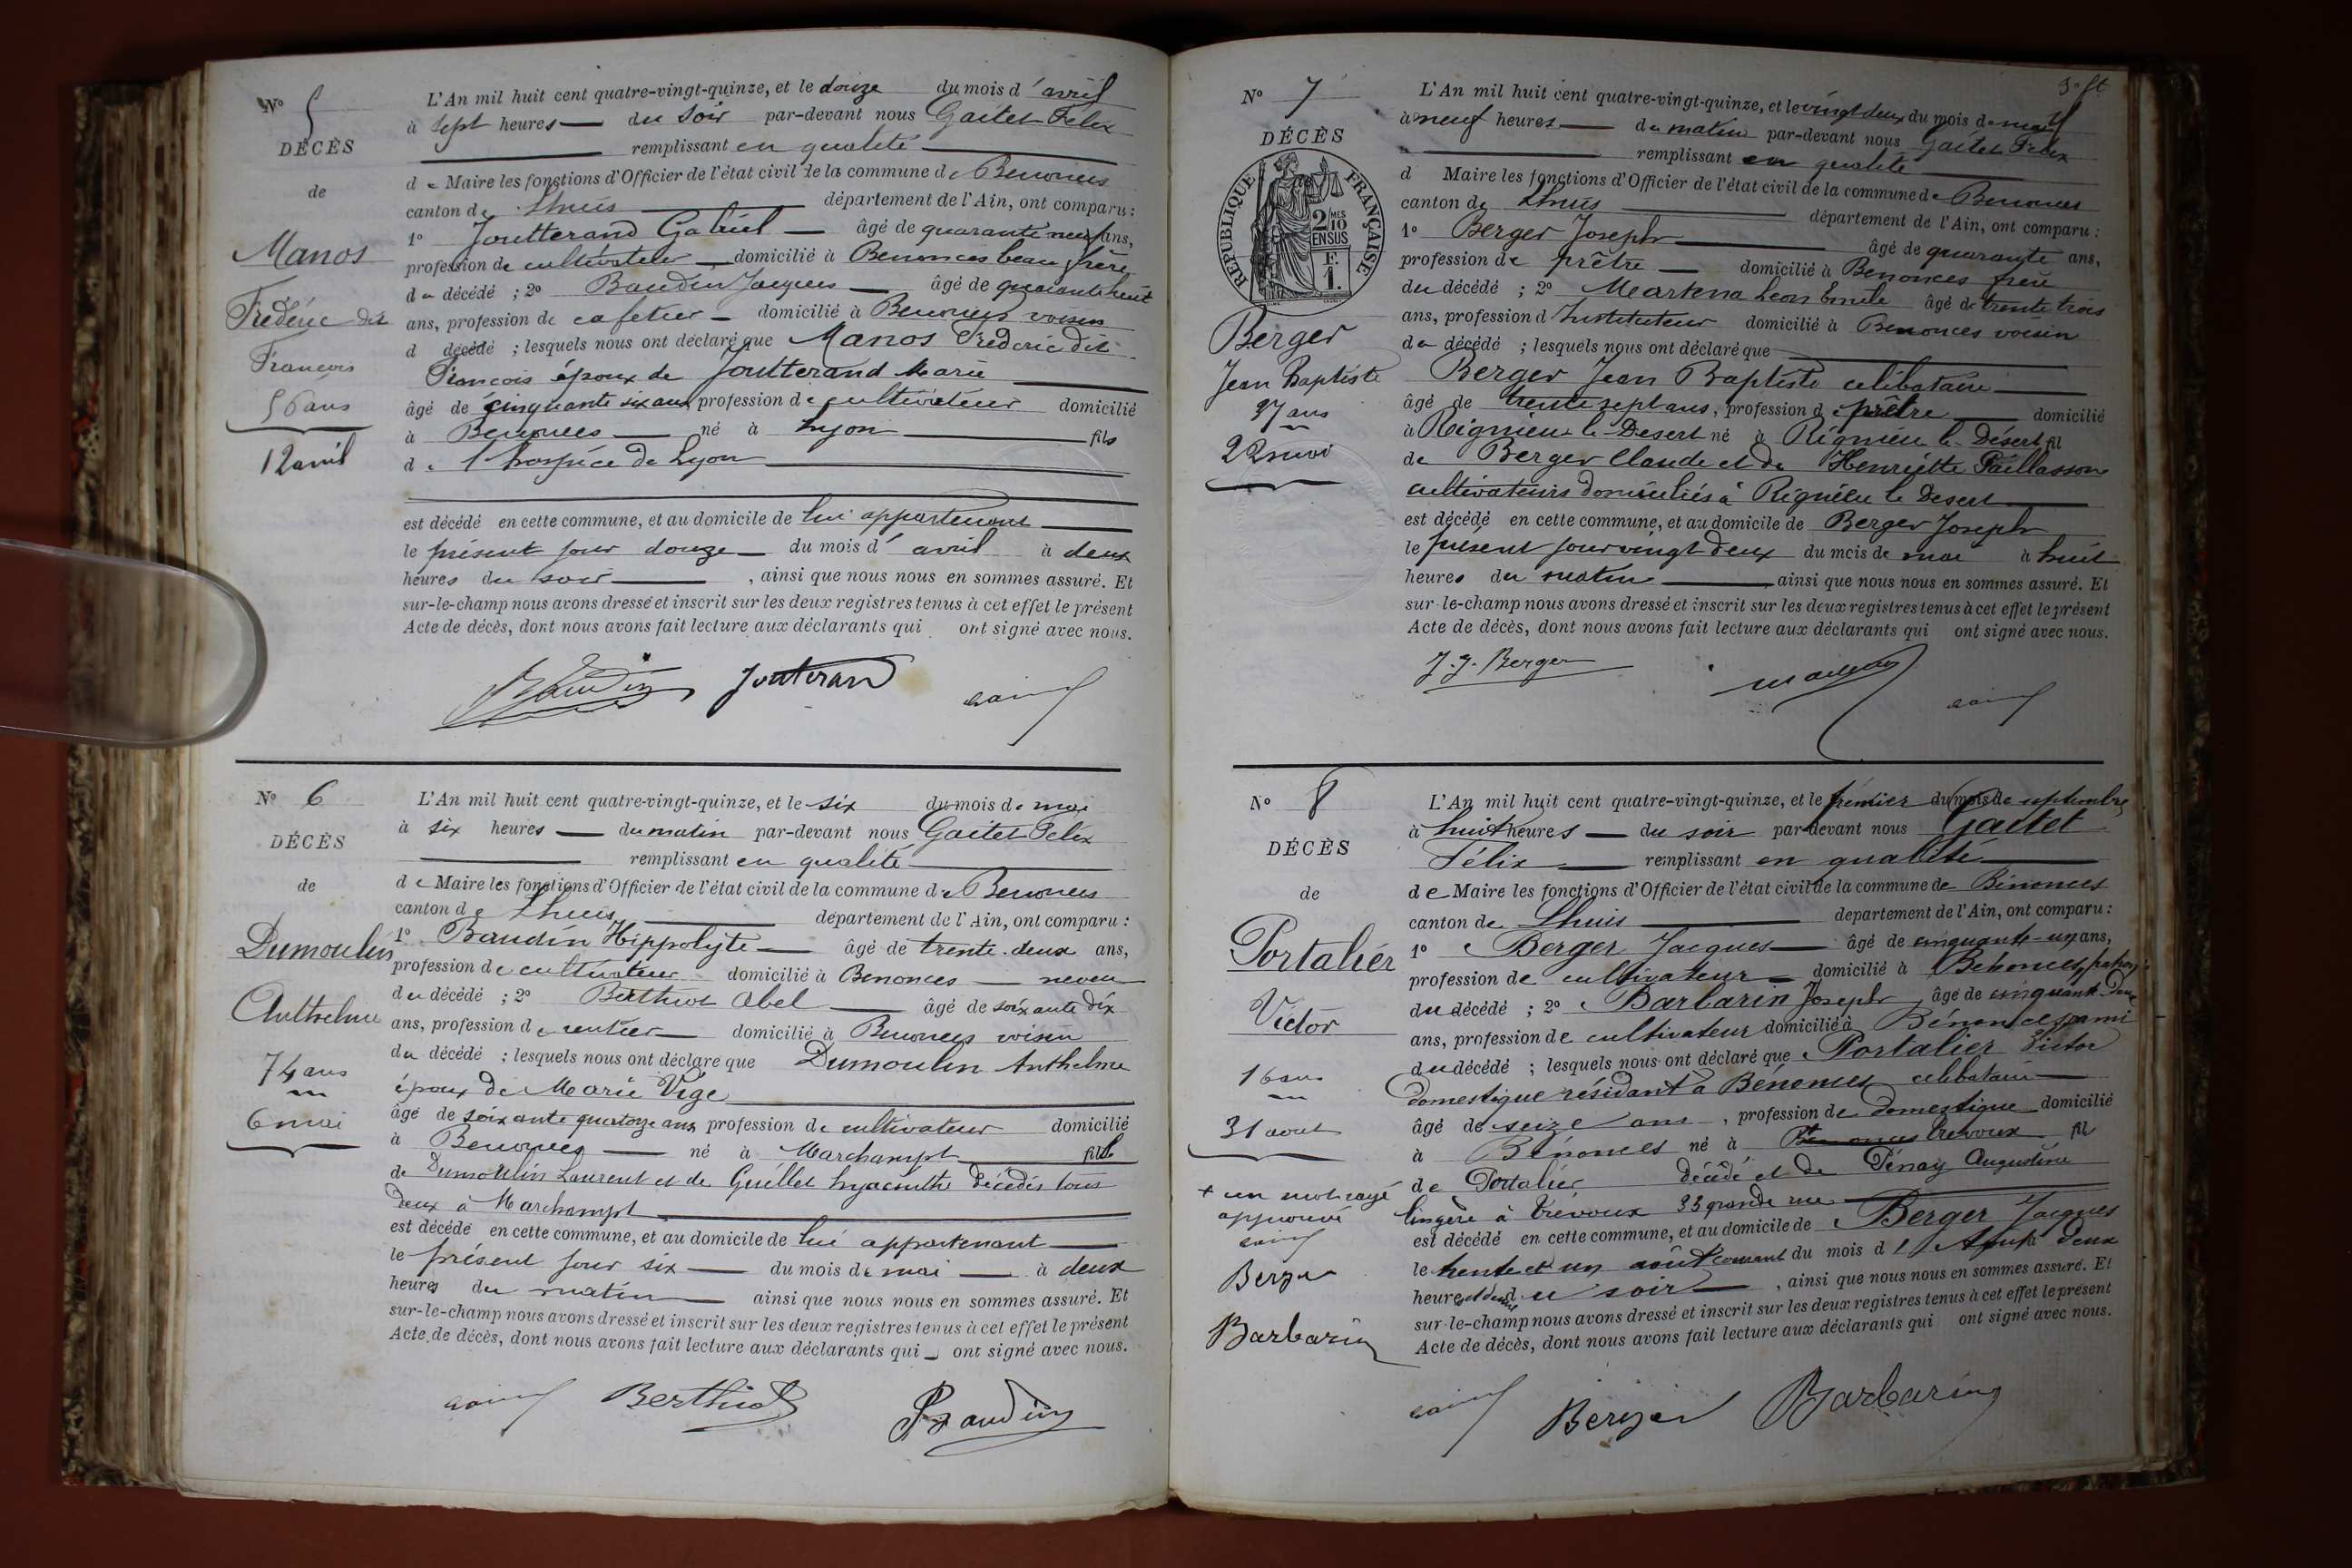 Nº 5
DÉCÈS
de
Manos
Frédéric dit
François
56 ans
12 avril
L'An mil huit cent quatre-vingt-quinze, et le douze du mois d'avril
à sept heures du soir par-devant nous Gaitet Félix
remplissant en qualité
de Maire les fonctions d'Officier de l'état civil de la commune de Benonces
canton de Lhuis département de l'Ain, ont comparu :
1º Joutterand Gabriel âgé de quarante neuf ans,
profession de cultivateur domicilié à Benonces beau frère
du décédé ; 2º Baudin Jacques âgé de quarante huit
ans, profession de cafetier domicilié à Benonces voisin
d décédé ; lesquels nous ont déclaré que Manos Frédéric dit
François époux de Joutterand Marie
âgé de cinquante six ans, profession de cultivateur domicilié
à Benonces né à Lyon fils
de l'hospice de Lyon
est décédé en cette commune, et au domicile de lui appartenant
le présent jour douze du mois d'avril à deux
heures du soir, ainsi que nous nous en sommes assuré. Et
sur-le-champ nous avons dressé et inscrit sur les deux registres tenus à cet effet le présent
Acte de décès, dont nous avons fait lecture aux déclarants qui ont signé avec nous.
Baudin Jouterand
Nº 6
DÉCÈS
de
Dumoulin
Anthelme
74 ans
6 mai
L'An mil huit cent quatre-vingt-quinze, et le six du mois de mai
à six heures du matin par-devant nous Gaitet Félix
remplissant en qualité
de Maire les fonctions d'Officier de l'état civil de la commune de Benonces
canton de Lhuis département de l'Ain, ont comparu :
1º Baudin Hippolyte âgé de trente-deux ans,
profession de cultivateur domicilié à Benonces neveu
du décédé ; 2º Berthiot Abel âgé de soixante dix
ans, profession de rentier domicilié à Benonces voisin
du décédé ; lesquels nous ont déclaré que Dumoulin Anthelme
époux de Marie Vige
âgé de soixante quatorze ans, profession de cultivateur domicilié
à Benonces né à Marchampt fils
de Dumoulin Laurent et de Guillet hyacinthe décédés tous
deux à Marchampt
est décédé en cette commune, et au domicile de lui appartenant
le présent jour six du mois de mai à deux
heures du matin ainsi que nous nous en sommes assuré. Et
sur-le-champ nous avons dressé et inscrit sur les deux registres tenus à cet effet le présent
Acte de décès, dont nous avons fait lecture aux déclarants qui ont signé avec nous.
Berthiot Baudin
Nº 7
DÉCÈS
RÉPUBLIQUE FRANÇAISE
2/10 MES
EN SUS
F.
1.
Berger
Jean Baptiste
37 ans
22 mai
L'An mil huit cent quatre-vingt-quinze, et le vingt deux du mois de mai
à neuf heures du matin par-devant nous Gaitet Félix
remplissant en qualité
d Maire les fonctions d'Officier de l'état civil de la commune de Benonces
canton de Lhuis département de l'Ain, ont comparu :
1º Berger Joseph âgé de quarante ans,
profession de prêtre domicilié à Benonces frère
du décédé ; 2º Martena Leon Emile âgé de trente trois
ans, profession d'Instituteur domicilié à Benonces voisin
du décédé ; lesquels nous ont déclaré que
Berger Jean Baptiste célibataire
âgé de trente sept ans, profession de prêtre domicilié
à Rignieu le Desert né à Rignieu le Désert fil
de Berger Claude et de Henriette Paillasson
cultivateurs domiciliés à Rignieu le Desert
est décédé en cette commune, et au domicile de Berger Joseph
le présent jour vingt deux du mois de mai à huit
heures du matin ainsi que nous nous en sommes assuré. Et
sur-le-champ nous avons dressé et inscrit sur les deux registres tenus à cet effet le présent
Acte de décès, dont nous avons fait lecture aux déclarants qui ont signé avec nous.
J. J. Berger
Nº 8
DÉCÈS
de
Portalier
Victor
16 ans
31 aout
+ un mot rayé
approuvé
Berger
Barbarin
L'An mil huit cent quatre-vingt-quinze, et le premier du mois de septembre
à huit heures du soir par-devant nous Gaitet
Félix remplissant en qualité
de Maire les fonctions d'Officier de l'état civil de la commune de Bénonces
canton de Lhuis département de l'Ain, ont comparu :
1º Berger Jacques âgé de cinquante-un ans,
profession de cultivateur domicilié à Bénonces, patron
du décédé ; 2º Barbarin Joseph âgé de cinquante-deux
ans, profession de cultivateur domicilié à Bénonces, ami
du décédé ; lesquels nous ont déclaré que Portalier Victor
domestique résidant à Bénonces célibataire
âgé de seize ans, profession de domestique domicilié
à Bénonces né à Benonces trévoux fil
de Portalier décédé et de Pénay Augustine
lingère à Trévoux 33 grande rue
est décédé en cette commune, et au domicile de Berger Jacques
le trente et un août courant du mois d'Août à deux
heures et demie du soir, ainsi que nous nous en sommes assuré. Et
sur-le-champ nous avons dressé et inscrit sur les deux registres tenus à cet effet le présent
Acte de décès, dont nous avons fait lecture aux déclarants qui ont signé avec nous.
Berger Barbarin